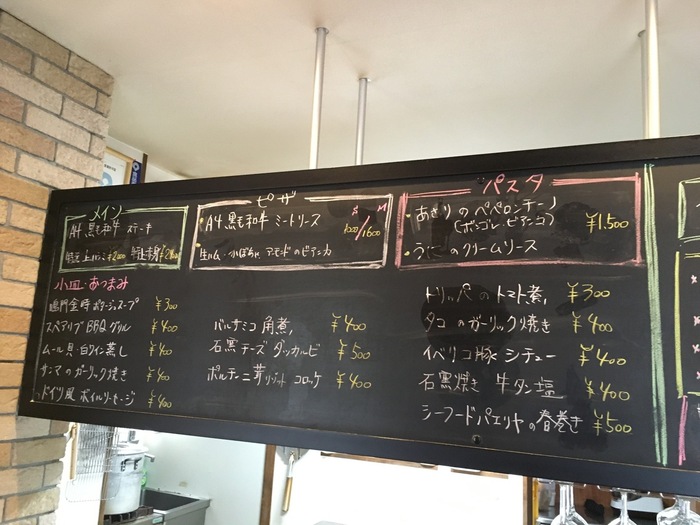 メイン
A4 黒毛和牛 ステーキ
特選 上ハラミ ¥2000
ピザ
S M
・A4 黒毛和牛 ミートソース
1000/1600
・生ハム・小ぼちゃ アーモンドのビアンカ
パスタ
・あさりの ペペロンチーノ
(ボンゴレ・ビアンコ)
¥1,500
・うにの クリームソース
小皿・おつまみ
鳴門金時 ポタージュスープ ¥300
スペアリブ BBQ グリル ¥400
ムール貝 白ワイン蒸し ¥400
サンマのガーリック焼き ¥400
ドイツ風 ボイルソーセージ ¥400
バルサミコ 角煮 ¥400
石窯チーズ ダッカルビ ¥500
ポルチーニ茸リゾット コロッケ ¥400
トリッパ の トマト煮 ¥300
タコ のガーリック焼き ¥400
イベリコ豚 シチュー ¥400
石窯焼き 牛タン塩 ¥400
シーフードパエリヤの春巻き ¥500